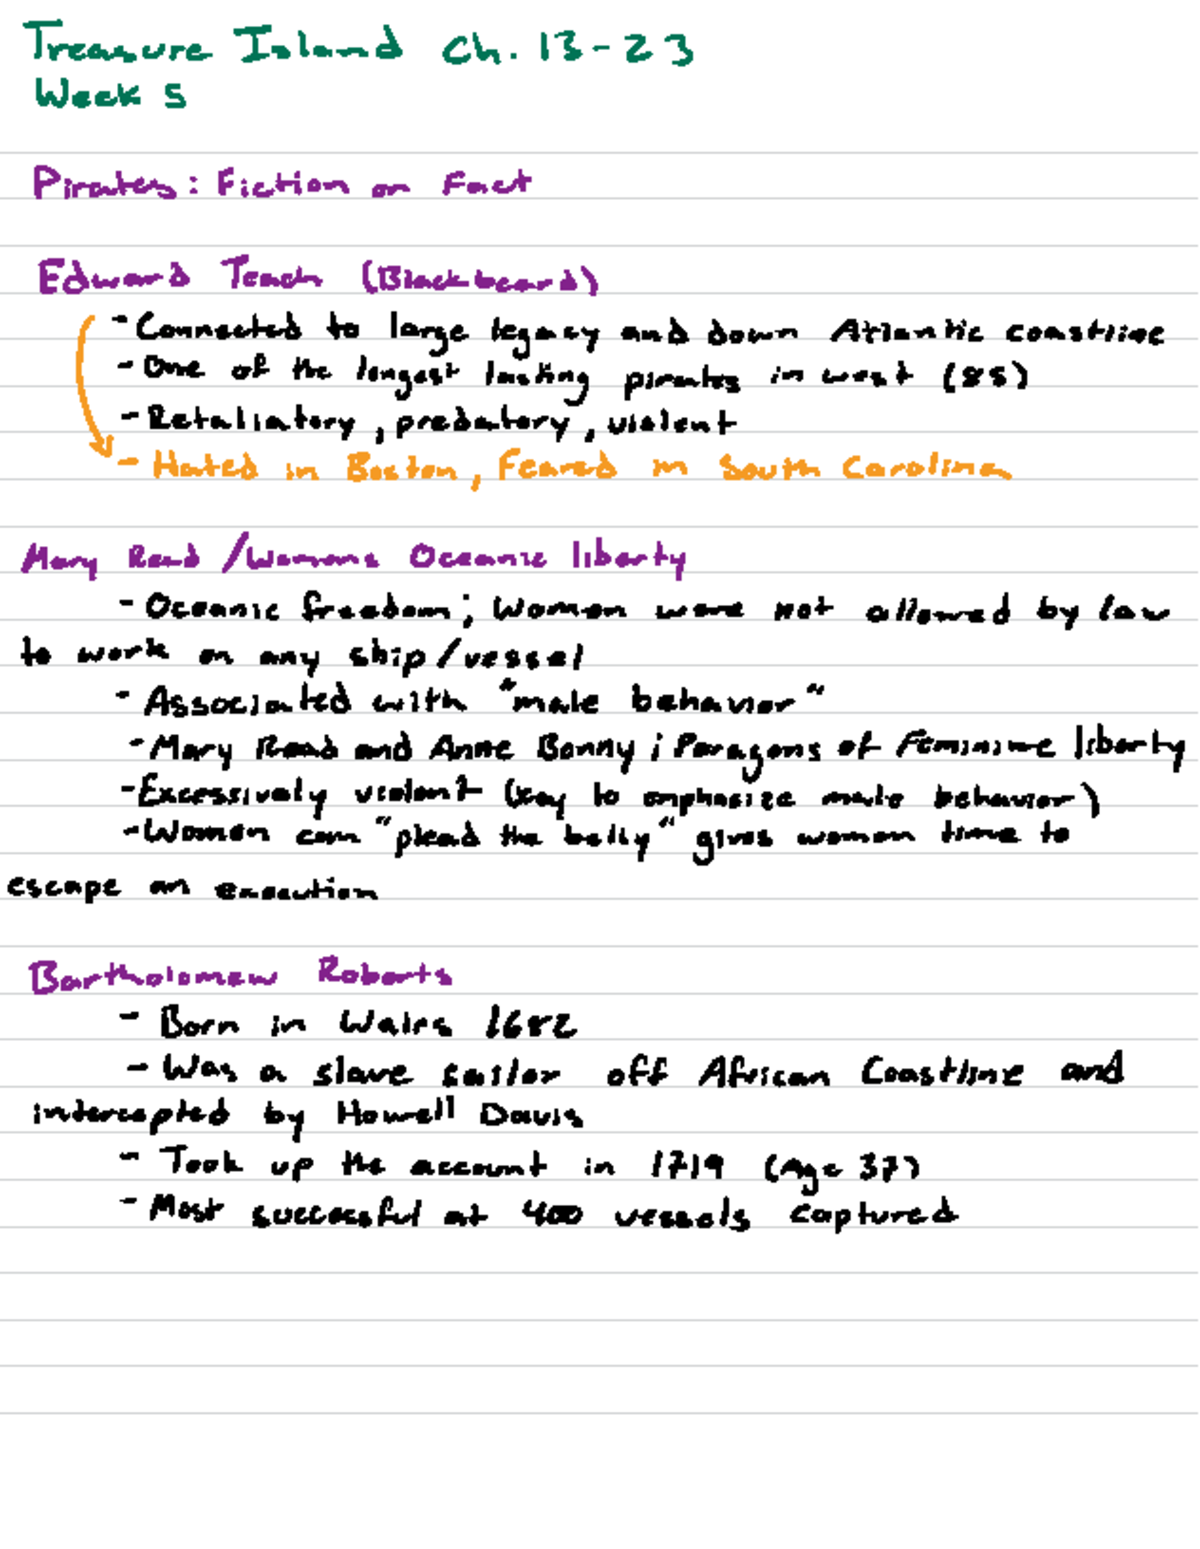 Treasure Island Ch. 13-23
Week 5
Pirates: Fiction or Fact
Edward Teach (Blackbeard)
- Connected to large legacy and down Atlantic coastline
- One of the longest lasting pirates in west (85)
- Retaliatory, predatory, violent
- Hated in Boston, Feared in South Carolina
Mary Read / Womans Oceanic liberty
- Oceanic freedom; Women were not allowed by law
to work on any ship/vessel
- Associated with "male behavior"
- Mary Read and Anne Bonny; Paragons of Feminine liberty
- Excessively violent (key to emphasize male behavior)
- Women can "plead the belly" gives woman time to
escape an execution
Bartholomew Roberts
- Born in Wales 1682
- Was a slave sailor off African Coastline and
intercepted by Howell Davis
- Took up the account in 1719 (Age 37)
- Most successful at 400 vessels captured